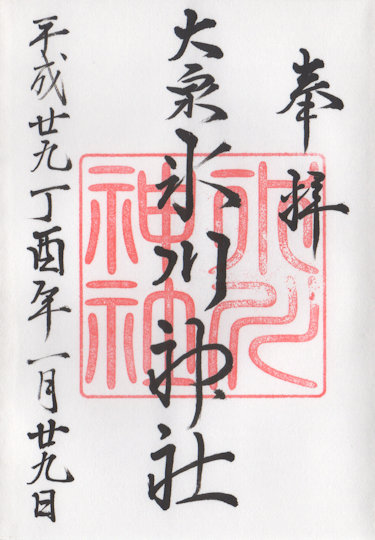 奉拝
大泉氷川神社
平成廿九丁酉年一月廿九日
氷川
神社